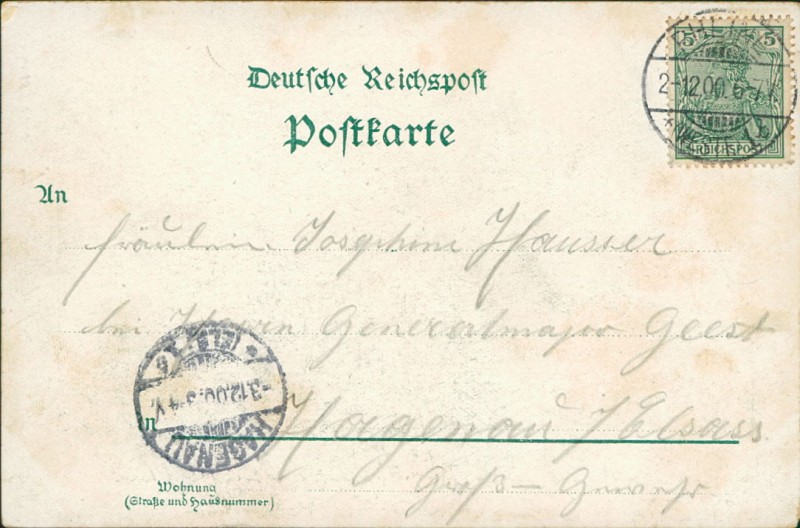 5 5
2-12.00. 6-7
REICHSPOST
Deutsche Reichspost
Postkarte
An
Fräulein Josephine Hausser
bei Herrn Generalmajor Geest
in Hagenau / Elsass
Wohnung
(Straße und Hausnummer)
(ELS.)
-3.12.00. 3-4 V.
HAGENAU